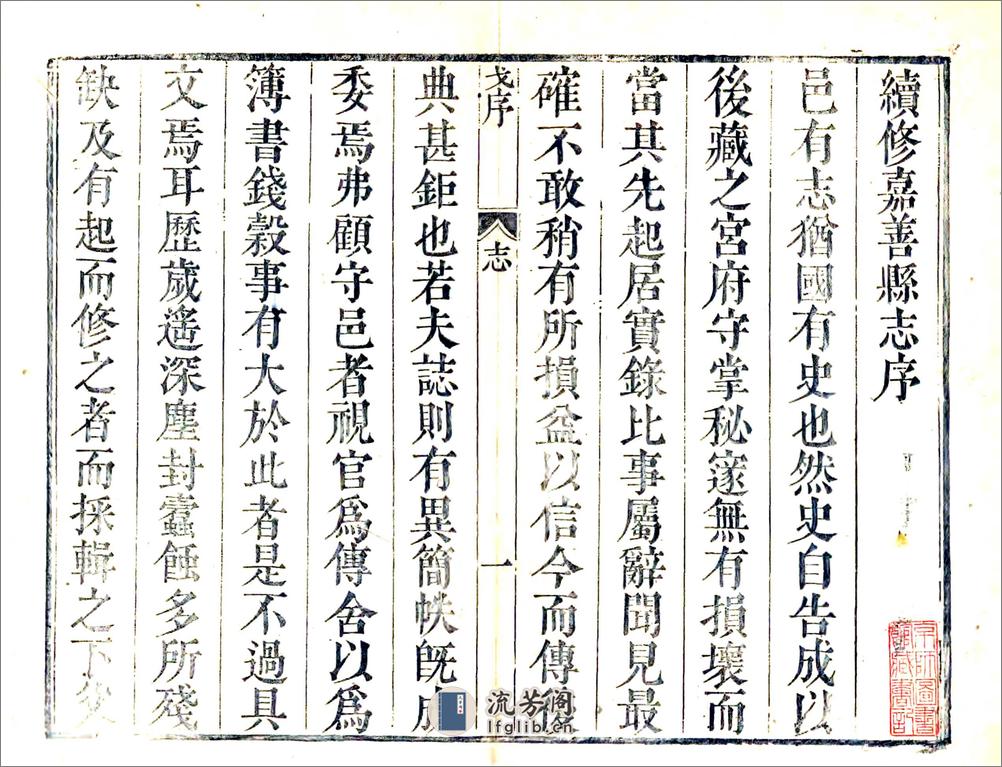 續修嘉善縣志序
邑有志猶國有史也然史自告成以
後藏之宮府守掌秘邃無有損壞而
當其先起居實錄比事屬辭聞見最
確不敢稍有所損益以信今而傳
戈序
志
一
典甚鉅也若夫誌則有異簡帙旣成
委焉弗顧守邑者視官爲傳舍以爲
簿書錢穀事有大於此者是不過具
文焉耳歷歲遙深塵封蠹蝕多所殘
缺及有起而修之者而採輯之下後
京師圖書
館藏書記
流芳閣
lfglib.cn